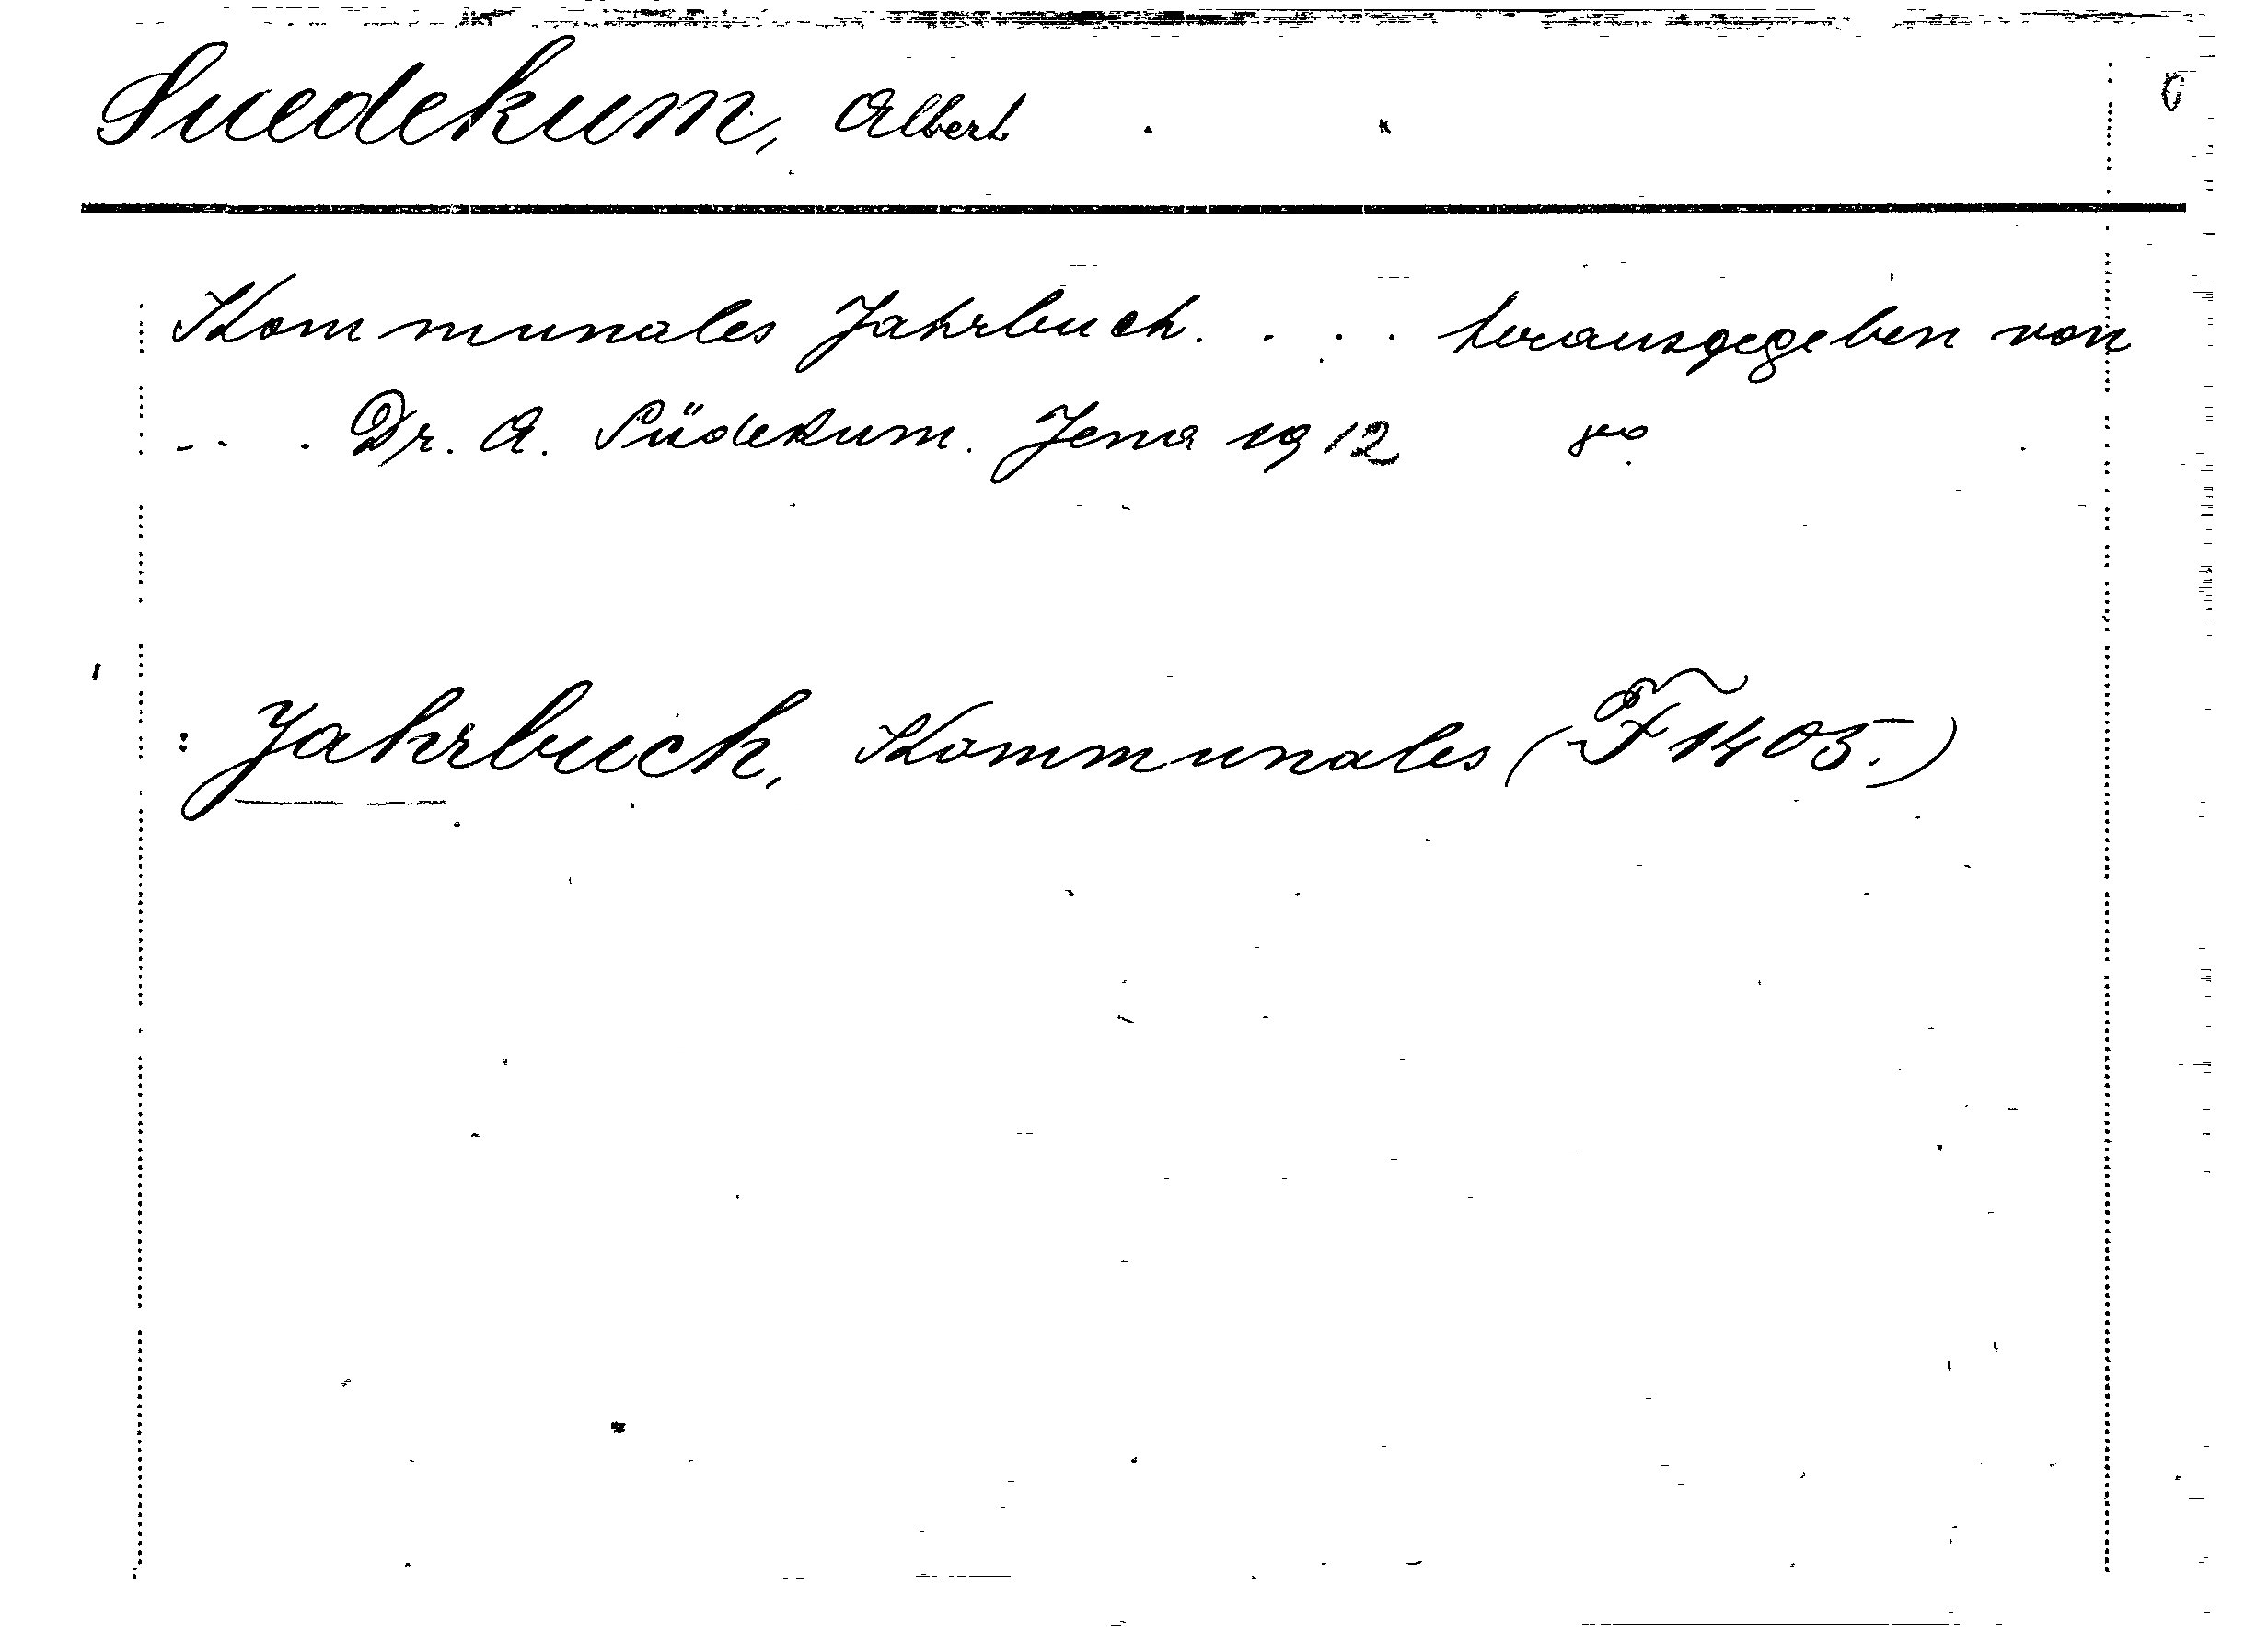 Suedekum, Albert
Kommunales Jahrbuch. . . . herausgegeben von
. . . Dr. A. Südekum. Jena 1912 8vo
: Jahrbuch, Kommunales (F 1405.)